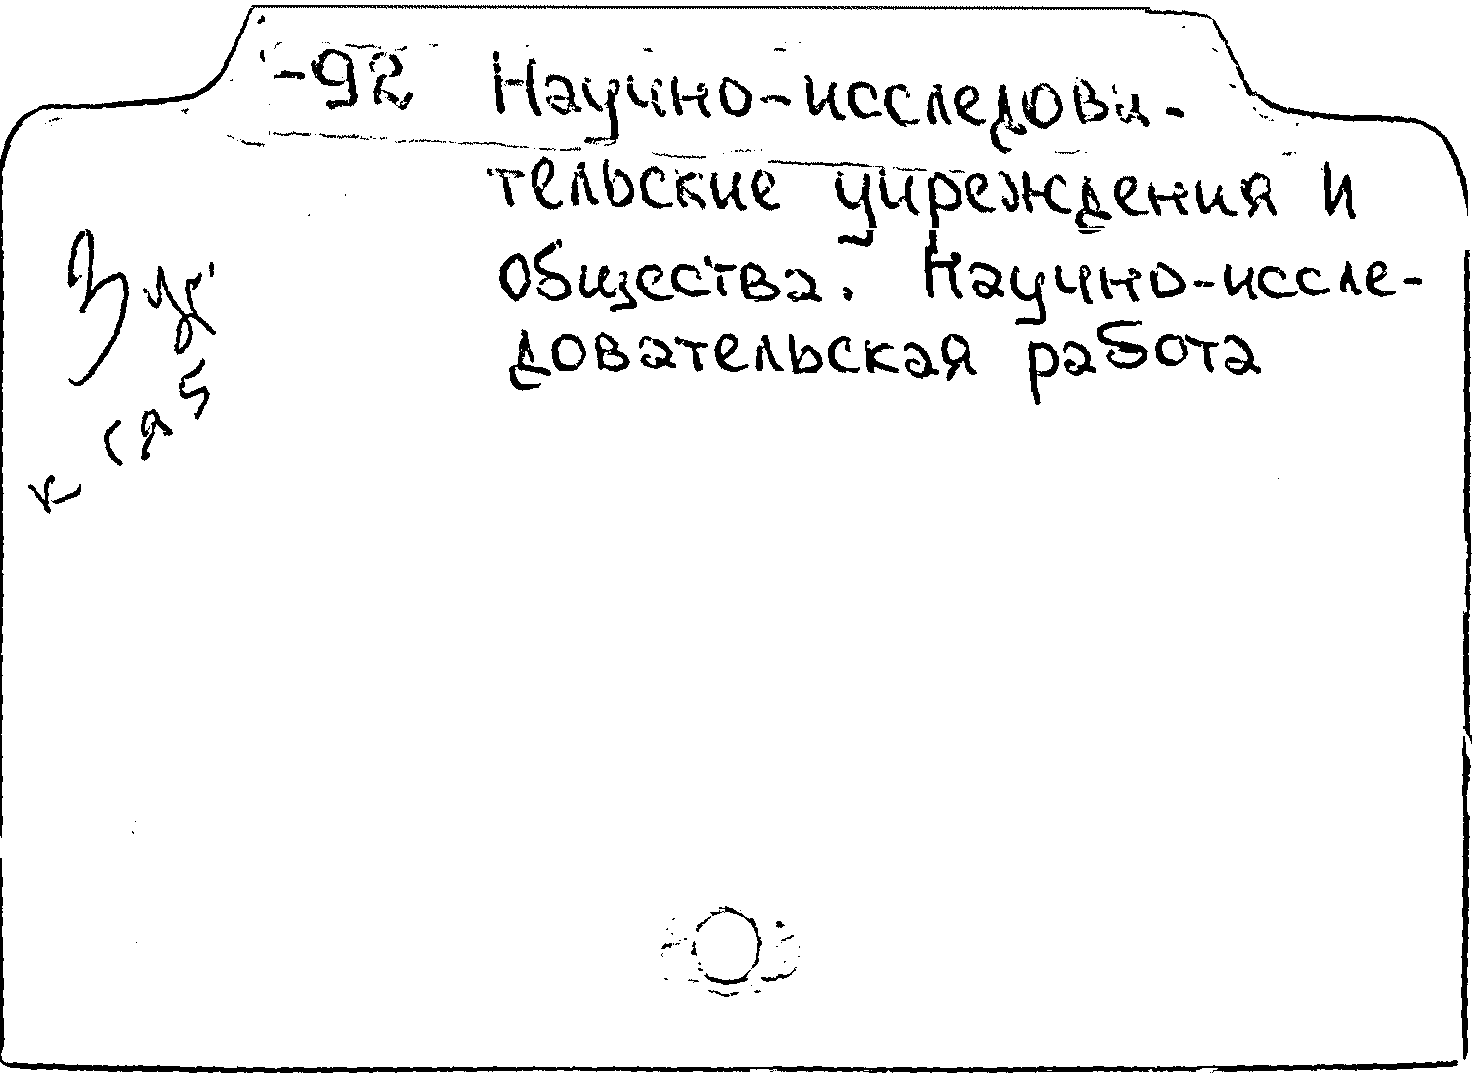 -92 Научно-исследова-
тельские учреждения и
общества. Научно-иссле-
довательская работа